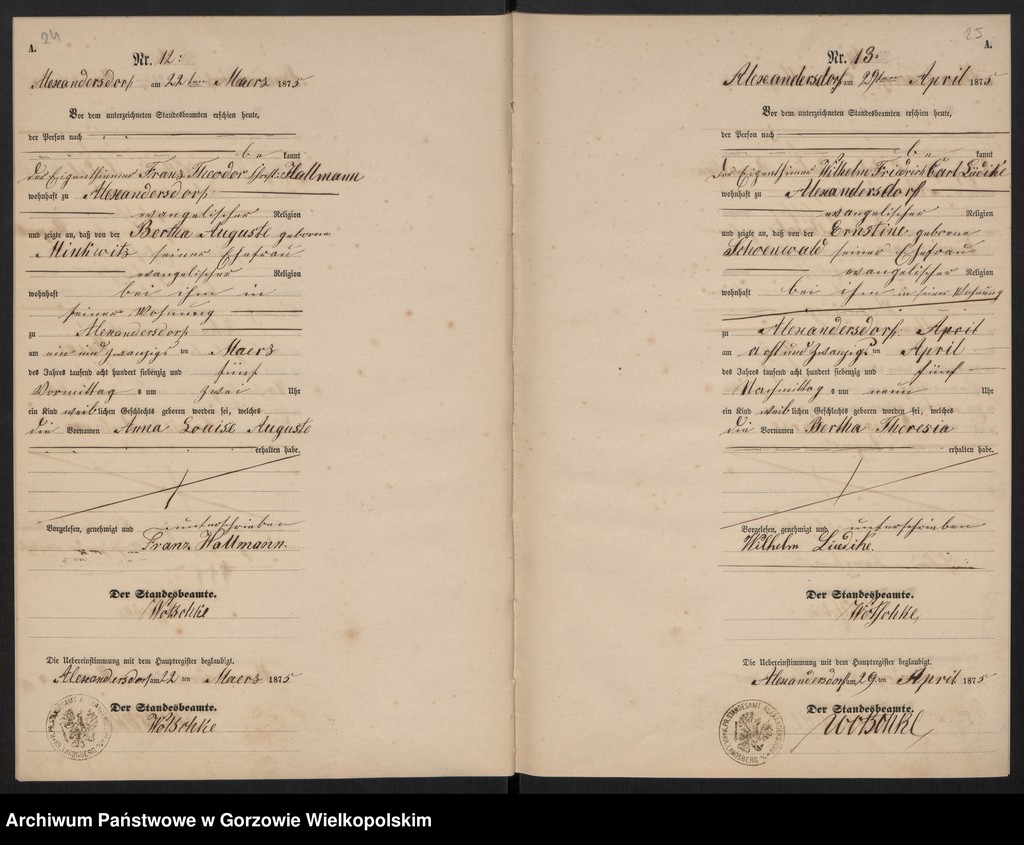 24
A.
Nr. 12:
Alexandersdorf am 22ten Maerz 1875
Vor dem unterzeichneten Standesbeamten erschien heute,
der Person nach
be kannt
der Eigenthümer Franz Theodor Hallmann
wohnhaft zu Alexandersdorf
evangelischer Religion
und zeigte an, daß von der Bertha Auguste geborne
Minkwitz seiner Ehefrau
evangelischer Religion
wohnhaft bei ihm in
seiner Wohnung
zu Alexandersdorf
am ein und zwanzigsten Maerz
des Jahres tausend acht hundert siebenzig und fünf
Vormittag s um zwei Uhr
ein Kind weiblichen Geschlechts geboren worden sei, welches
die Vornamen Anna Louise Auguste
erhalten habe.
Vorgelesen, genehmigt und unterschrieben
Franz Hallmann.
Der Standesbeamte.
Wotschke
Die Uebereinstimmung mit dem Hauptregister beglaubigt.
Alexandersdorf am 22 ten Maerz 1875
Der Standesbeamte.
Wotschke
25
A.
Nr. 13.
Alexandersdorf am 29ten April 1875
Vor dem unterzeichneten Standesbeamten erschien heute,
der Person nach
be kannt
der Eigenthümer Wilhelm Friedrich Carl Lüdike
wohnhaft zu Alexandersdorf
evangelischer Religion
und zeigte an, daß von der Ernstine geborne
Schoenewald seiner Ehefrau
evangelischer Religion
wohnhaft bei ihm in seiner Wohnung
zu Alexandersdorf: April
am acht und zwanzigsten April
des Jahres tausend acht hundert siebenzig und fünf
Nachmittag s um neun Uhr
ein Kind weiblichen Geschlechts geboren worden sei, welches
die Vornamen Bertha Theresia
erhalten habe.
Vorgelesen, genehmigt und unterschrieben
Wilhelm Lüdike.
Der Standesbeamte.
Wotschke
Die Uebereinstimmung mit dem Hauptregister beglaubigt.
Alexandersdorf am 29. ten April 1875
Der Standesbeamte.
Wotschke
Archiwum Państwowe w Gorzowie Wielkopolskim